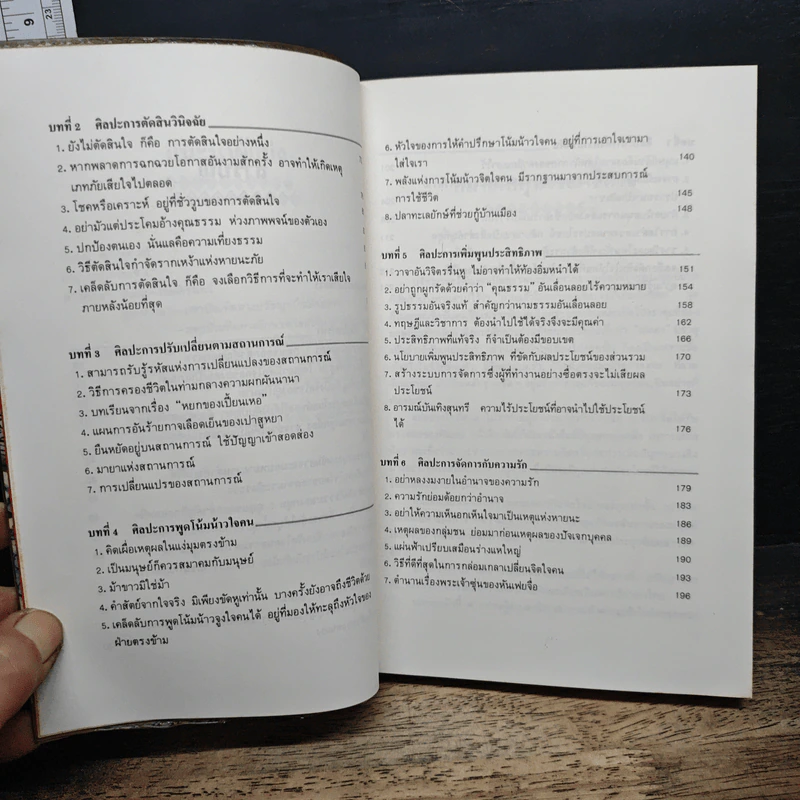 บทที่ 2 ศิลปะการตัดสินวินิจฉัย
1. ยังไม่ตัดสินใจ ก็คือ การตัดสินใจอย่างหนึ่ง
2. หากพลาดการฉกฉวยโอกาสอันงามสักครั้ง อาจทำให้เกิดเหตุ
เภทภัยเสียใจไปตลอด
3. โชคหรือเคราะห์ อยู่ที่ชั่ววูบของการตัดสินใจ
4. อย่ามัวแต่ประโคมอ้างคุณธรรม ห่วงภาพพจน์ของตัวเอง
5. ปกป้องตนเอง นั่นแลคือความเที่ยงธรรม
6. วิธีตัดสินใจกำจัดรากเหง้าแห่งหายนะภัย
7. เคล็ดลับการตัดสินใจ ก็คือ จงเลือกวิธีการที่จะทำให้เราเสียใจ
ภายหลังน้อยที่สุด
บทที่ 3 ศิลปะการปรับเปลี่ยนตามสถานการณ์
1. สามารถรับรู้รหัสแห่งการเปลี่ยนแปลงของสถานการณ์
2. วิธีการครองชีวิตในท่ามกลางความผกผันนานา
3. บทเรียนจากเรื่อง "หยกของเปี้ยนเหอ"
4. แผนการอันร้ายกาจเลือดเย็นของเปาสูหยา
5. ยืนหยัดอยู่บนสถานการณ์ ใช้ปัญญาเข้าสอดส่อง
6. มายาแห่งสถานการณ์
7. การเปลี่ยนแปรของสถานการณ์
บทที่ 4 ศิลปะการพูดโน้มน้าวใจคน
1. คิดเผื่อเหตุผลในแง่มุมตรงข้าม
2. เป็นมนุษย์ก็ควรสมาคมกับมนุษย์
3. ม้าขาวมิใช่ม้า
4. คำสัตย์จากใจจริง มีเพียงขัดหูเท่านั้น บางครั้งยังอาจถึงชีวิตด้วย
5. เคล็ดลับการพูดโน้มน้าวจูงใจคนได้ อยู่ที่มองให้ทะลุถึงหัวใจของ
ฝ่ายตรงข้าม
6. หัวใจของการให้คำปรึกษาโน้มน้าวใจคน อยู่ที่การเอาใจเขามา
ใส่ใจเรา 140
7. พลังแห่งการโน้มน้าวจิตใจคน มีรากฐานมาจากประสบการณ์
การใช้ชีวิต 145
8. ปลาทะเลยักษ์ที่ช่วยกู้บ้านเมือง 148
บทที่ 5 ศิลปะการเพิ่มพูนประสิทธิภาพ
1. วาจาอันวิจิตรรื่นหู ไม่อาจทำให้ท้องอิ่มหนำได้ 151
2. อย่าถูกผูกรัดด้วยคำว่า "คุณธรรม" อันเลื่อนลอยไร้ความหมาย 154
3. รูปธรรมอันจริงแท้ สำคัญกว่านามธรรมอันเลื่อนลอย 158
4. ทฤษฎีและวิชาการ ต้องนำไปใช้ได้จริงจึงจะมีคุณค่า 162
5. ประสิทธิภาพที่แท้จริง ก็จำเป็นต้องมีขอบเขต 166
6. นโยบายเพิ่มพูนประสิทธิภาพ ที่ขัดกับผลประโยชน์ของส่วนรวม 170
7. สร้างระบบการจัดการซึ่งผู้ที่ทำงานอย่างซื่อตรงจะไม่เสียผล
ประโยชน์ 173
8. อารมณ์บันเทิงสุนทรี ความไร้ประโยชน์ที่อาจนำไปใช้ประโยชน์
ได้ 176
บทที่ 6 ศิลปะการจัดการกับความรัก
1. อย่าหลงงมงายในอำนาจของความรัก 179
2. ความรักย่อมด้อยกว่าอำนาจ 183
3. อย่าให้ความเห็นอกเห็นใจมาเป็นเหตุแห่งหายนะ 186
4. เหตุผลของกลุ่มชน ย่อมมาก่อนเหตุผลของปัจเจกบุคคล 189
5. แผ่นฟ้าเปรียบเสมือนร่างแหใหญ่ 190
6. วิธีที่ดีที่สุดในการกล่อมเกลาเปลี่ยนจิตใจคน 193
7. ตำนานเรื่องพระเจ้าซุ่นของหันเฟยจื่อ 196